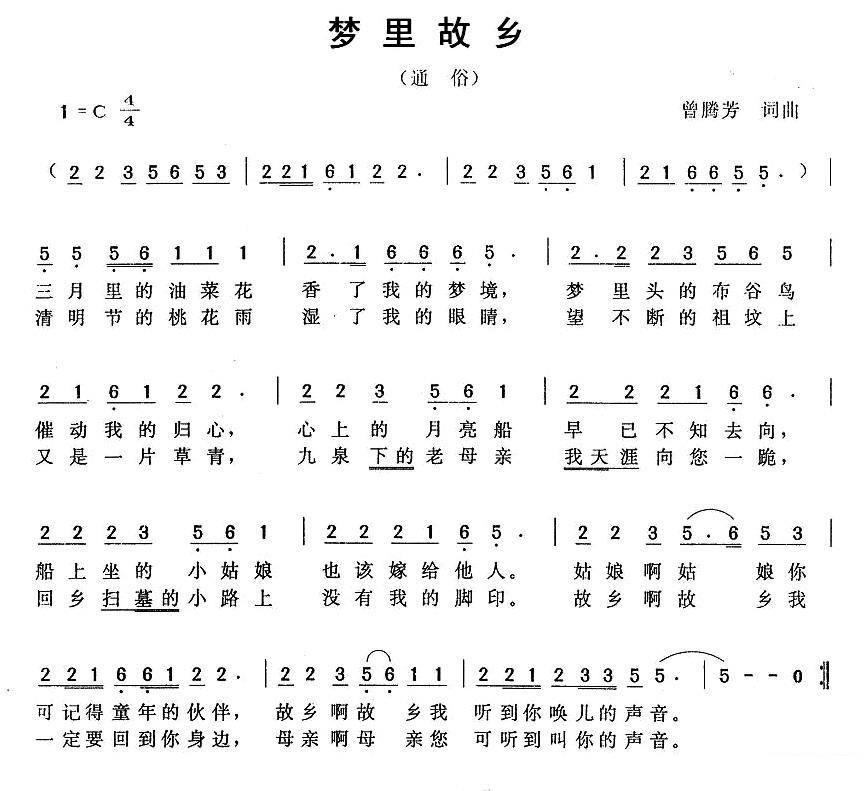 梦里故乡
（通 俗）
1=C 4/4 曾腾芳 词曲
（2 2 3 5 6 5 3 | 2 2 1 6 1 2 2 . | 2 2 3 5 6 1 | 2 1 6 6 5 5 . ）|
5 5 5 6 1 1 1 | 2 . 1 6 6 6 5 . | 2 . 2 2 3 5 6 5 |
三月里的油菜花 香了我的梦境， 梦里头的布谷鸟
清明节的桃花雨 湿了我的眼睛， 望不断的祖坟上
2 1 6 1 2 2 . | 2 2 3 5 6 1 | 2 2 2 1 6 6 . |
催动我的归心， 心上的月亮船 早已不知去向，
又是一片草青， 九泉下的老母亲 我天涯向您一跪，
2 2 2 3 5 6 1 | 2 2 2 1 6 5 . | 2 2 3 5 . 6 5 3 |
船上坐的小姑娘 也该嫁给他人。 姑娘啊姑娘你
回乡扫墓的小路上 没有我的脚印。 故乡啊故乡我
2 2 1 6 6 1 2 2 . | 2 2 3 5 6 1 1 | 2 2 1 2 3 3 5 5 . | 5 - - 0 :||
可记得童年的伙伴， 故乡啊故乡我 听到你唤儿的声音。
一定要回到你身边， 母亲啊母亲您 可听到叫你的声音。